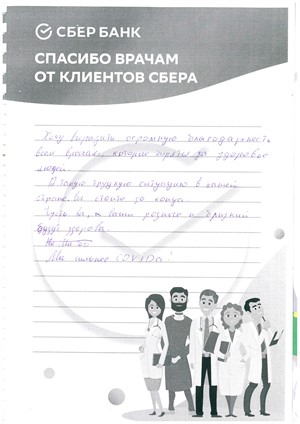 СБЕР БАНК
СПАСИБО ВРАЧАМ
ОТ КЛИЕНТОВ СБЕРА
Хочу выразить огромную благодарность
всем врачам, которые борятся за здоровье
людей.
В такую трудную ситуацию в нашей
стране Вы стоите до конца.
Пусть Вы, и ваши родные и близкие
будут здоровы.
Мы сильнее COVIDа!